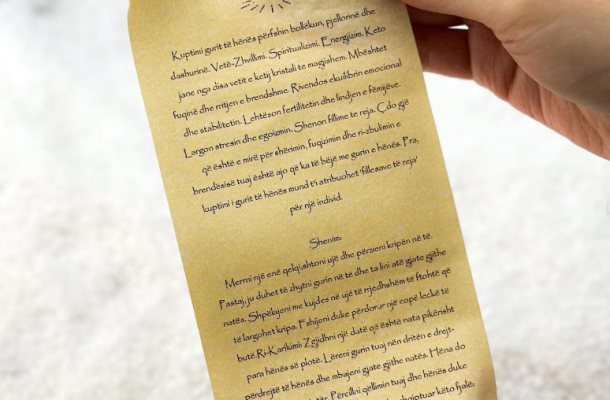 Kuptimi gurit të hënës përfshin bollëkun, pjellorinë dhe
dashurinë. Vetë-Zhvillimi. Spiritualizimi. Energjizim. Keto
jane nga disa vetit e ketij kristali te magjishem. Mbështet
fuqinë dhe rritjen e brendshme. Rivendos ekuilibrin emocional
dhe stabilitetin. Lehtëson fertilitetin dhe lindjen e fëmijëve.
Largon stresin dhe egoizmin. Shenon fillime te reja. Ç do gjë
që është e mirë për shërimin, fuqizimin dhe ri-zbulimin e
brendësisë tuaj është ajo që ka të bëjë me gurin e hënës. Pra,
kuptimi i gurit të hënës mund t'i atribuohet 'fillesave të reja'
për një individ.
Shenim:
Merrni një enë qelqi,shtoni ujë dhe përzieni kripën në të.
Pastaj, ju duhet të zhytni gurin në të dhe ta lini atë gjate gjithe
natës. Shpëlajeni me kujdes në ujë të rrjedhshëm të ftohtë që
të largohet kripa. Fshijeni duke përdorur një copë leckë të
butë.Ri-Karikimi: Zgjidhni një datë që është nata pikërisht
para hënës së plotë. Lëreni gurin tuaj nën dritën e drejt-
përdrejtë të hënës dhe mbajeni gjate gjithe natës. Hëna do
Përcillni qëllimin tuaj dhe hënës duke
shqiptuar këto fjalë: